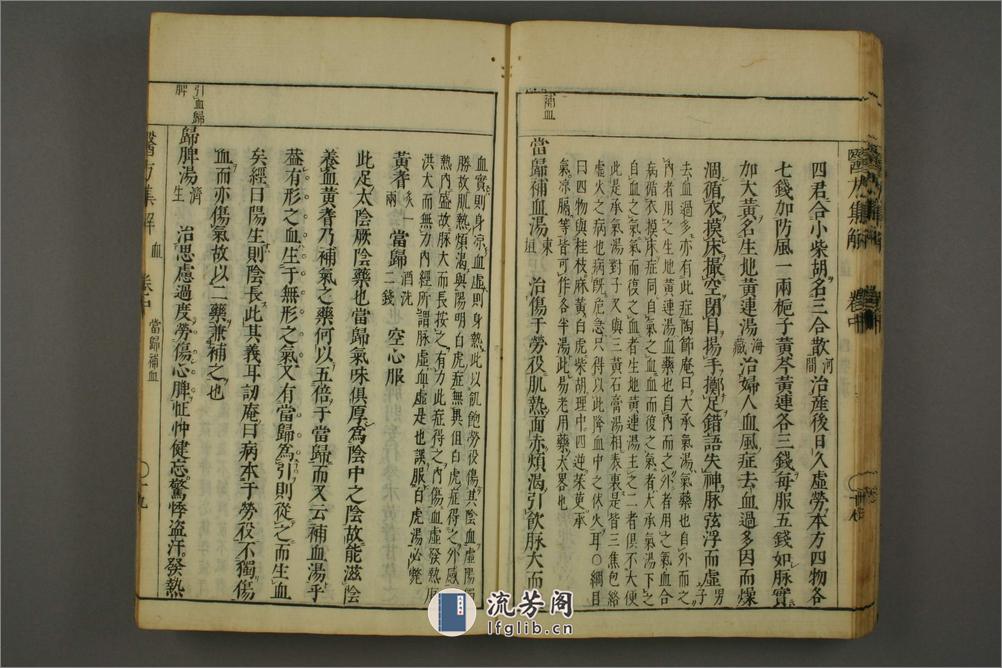 補血
四君合小柴胡名三合散河間治産後日久虛勞本方四物各
七錢加防風一兩梔子黃芩黃連各三錢每服五錢如脈實
加大黃名生地黃連湯海藏治婦人血風症去血過多因而燥
涸循衣摸床撮空閉目揚手擲足錯語失神脈弦浮而虛男子
去血過多亦有此症陶節庵曰大承氣湯氣藥也自外而之
內者用之生地黃連湯血藥也自內而之外者用之氣血合
病循衣摸床症同自氣之血血而復之氣者大承氣湯下之
自血之氣氣而復之血者生地黃連湯主之二者俱不大便
此是承氣湯對子又與三黃石膏湯相表裏是皆三焦包絡
虛火之病也病既危急只得以此降血中之伏火耳○綱目
曰四物與桂枝麻黃白虎柴胡理中四逆茱萸承
氣涼膈等皆可作各半湯此易老用藥大畧也
當歸補血湯東垣治傷于勞役肌熱面赤煩渴引飲脈大而
醫方集解
卷中
引血歸
脾
血實則身涼血虛則身熱此以飢飽勞役傷其陰血虛陽獨
勝故肌熱煩渴與陽明白虎症無異但白虎症得之外感
熱內盛故脈大而長按之有力此症得之內傷血虛發熱脈
洪大而無力內經所謂脈虛血虛是也誤服白虎湯必斃
黃耆一兩炙當歸二錢酒洗空心服
此足太陰厥陰藥也當歸氣味俱厚為陰中之陰故能滋陰
養血黃耆乃補氣之藥何以五倍于當歸而又云補血湯乎
葢有形之血生于無形之氣又有當歸為引則從之而生血
矣經曰陽生則陰長此其義耳訒庵曰病本于勞役不獨傷
血而亦傷氣故以二藥兼補之也
歸脾湯濟生治思慮過度勞傷心脾怔忡健忘驚悸盗汗發熱
醫方集解
血
卷中
當歸補血
十九
流芳阁
lfglib.cn